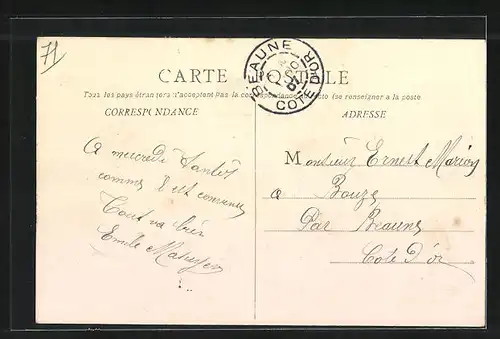 71
BEAUNE
COTE D'OR
CARTE POSTALE
Tous les pays étrangers n'acceptent pas la correspondance au recto (se renseigner à la poste
CORRESPONDANCE
ADRESSE
A mercredi
comme il est convenu
Tout va bien
Emile
Monsieur Ernest Marion
a Bouze
Par Beaune
Cote D'or